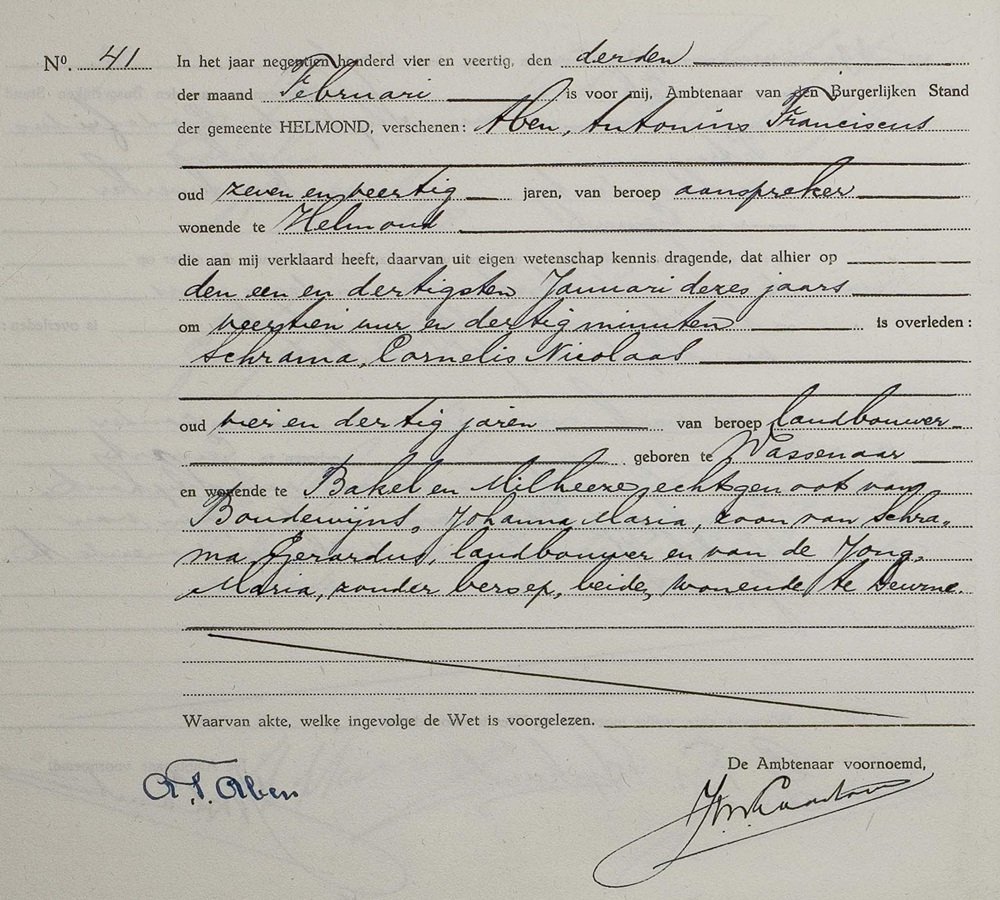 No. 41 In het jaar negentien honderd vier en veertig, den derden
der maand Februari is voor mij, Ambtenaar van den Burgerlijken Stand
der gemeente HELMOND, verschenen: Aben, Antonius Franciscus
oud zeven en veertig jaren, van beroep aanspreker
wonende te Helmond
die aan mij verklaard heeft, daarvan uit eigen wetenschap kennis dragende, dat alhier op
den een en dertigsten Januari dezes jaars
om veertien uur en dertig minuten is overleden:
Schrama, Cornelis Nicolaas
oud vier en dertig jaren van beroep landbouwer
geboren te Wassenaar
en wonende te Bakel en Milheeze, echtgenoot van
Boudewijns, Johanna Maria, zoon van Schra-
ma Gerardus, landbouwer en van de Jong,
Maria, zonder beroep, beide, wonende te Deurne.
Waarvan akte, welke ingevolge de Wet is voorgelezen.
De Ambtenaar voornoemd,
A.F. Aben